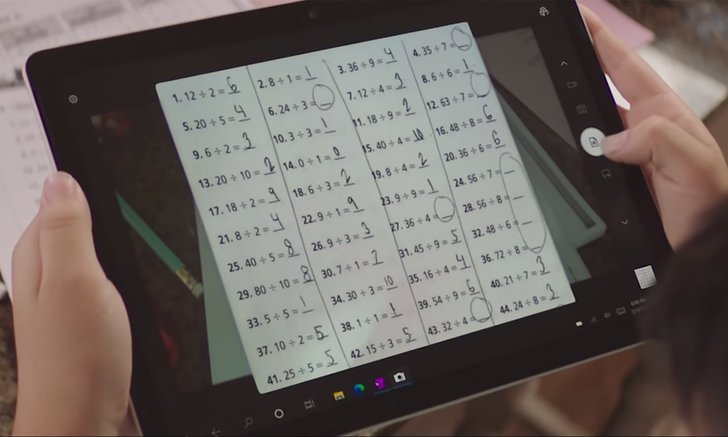 1. 12 ÷ 2 = 6 2. 8 ÷ 1 = 1 3. 36 ÷ 9 = 4 4. 35 ÷ 7 =
5. 20 ÷ 5 = 4 6. 24 ÷ 3 = 7. 12 ÷ 4 = 3 8. 6 ÷ 6 = 1
9. 6 ÷ 2 = 3 10. 3 ÷ 3 = 1 11. 18 ÷ 9 = 2 12. 63 ÷ 7 =
13. 20 ÷ 10 = 2 14. 0 ÷ 1 = 0 15. 40 ÷ 4 = 10 16. 48 ÷ 8 = 6
17. 18 ÷ 2 = 9 18. 6 ÷ 3 = 2 19. 8 ÷ 4 = 2 20. 36 ÷ 6 = 6
21. 8 ÷ 2 = 4 22. 9 ÷ 1 = 9 23. 9 ÷ 9 = 1 24. 56 ÷ 7 =
25. 40 ÷ 5 = 8 26. 9 ÷ 3 = 3 27. 36 ÷ 4 = 28. 56 ÷ 8 =
29. 80 ÷ 10 = 8 30. 7 ÷ 1 = 7 31. 45 ÷ 9 = 5 32. 48 ÷ 6 =
33. 5 ÷ 5 = 1 34. 30 ÷ 3 = 10 35. 16 ÷ 4 = 4 36. 72 ÷ 8 =
37. 10 ÷ 2 = 5 38. 1 ÷ 1 = 1 39. 54 ÷ 9 = 6 40. 21 ÷ 7 = 3
41. 25 ÷ 5 = 5 42. 15 ÷ 3 = 5 43. 32 ÷ 4 = 44. 24 ÷ 8 = 3